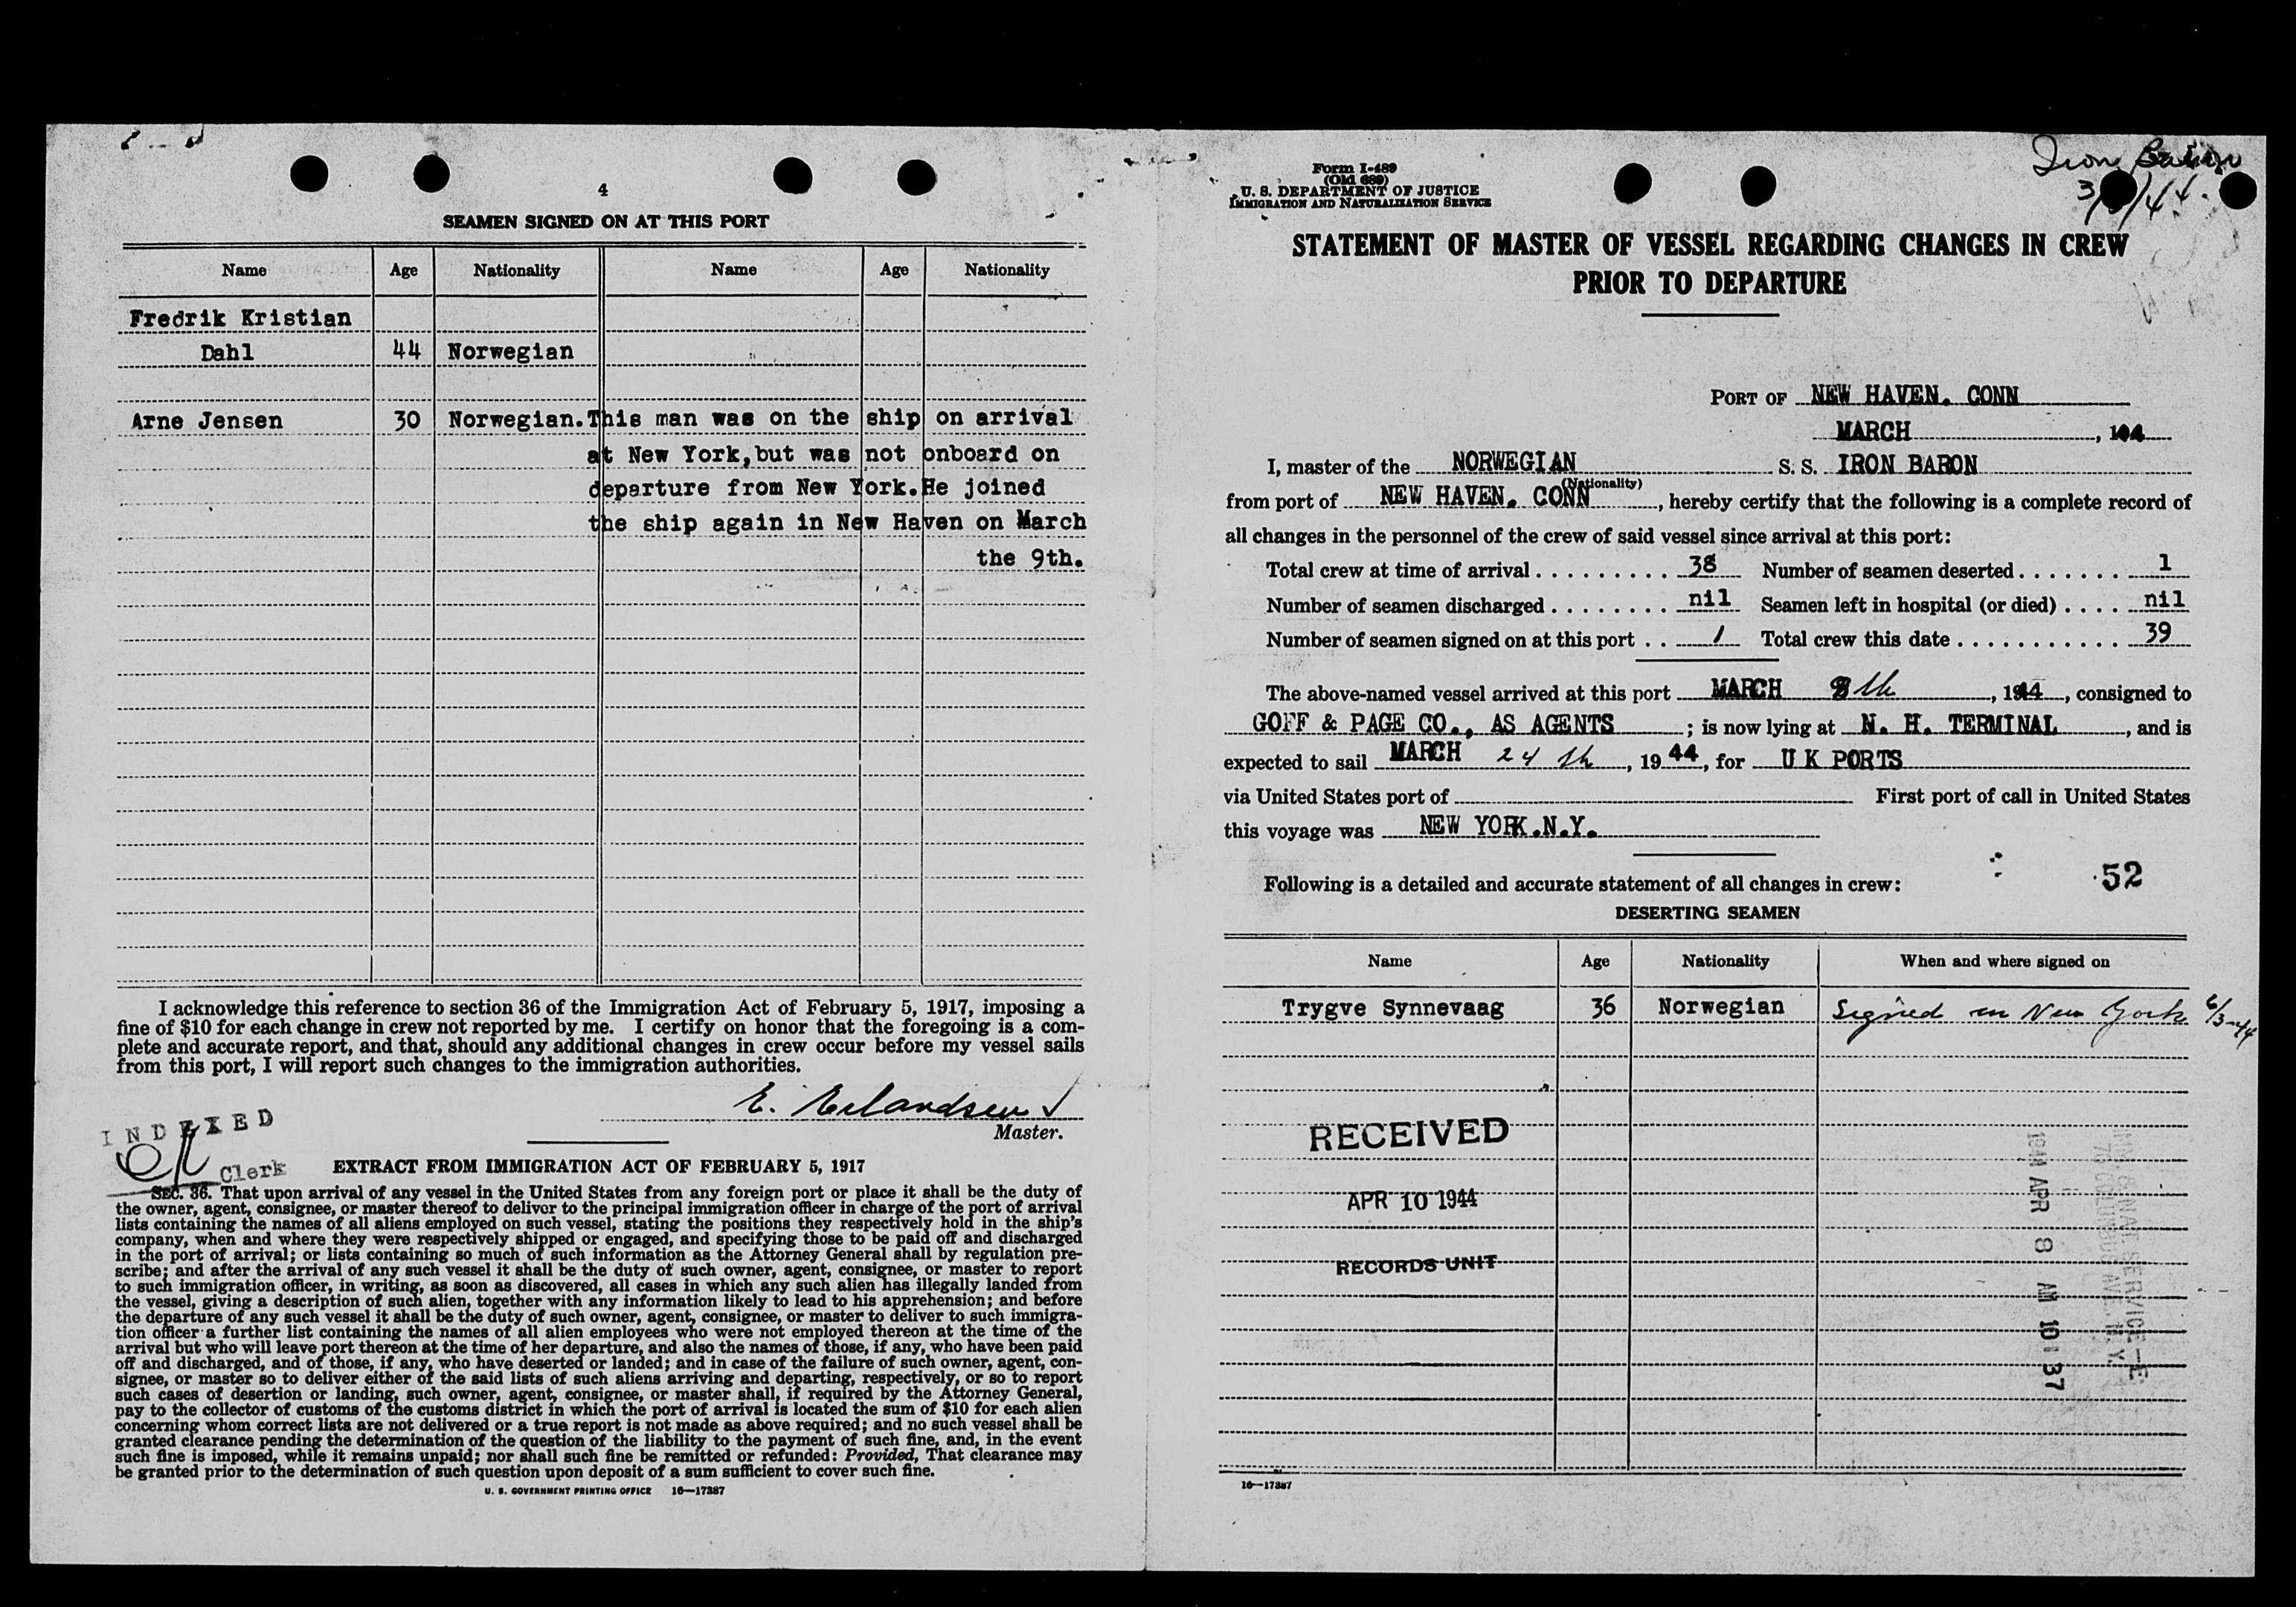 4
SEAMEN SIGNED ON AT THIS PORT
Name Age Nationality Name Age Nationality
Fredrik Kristian
Dahl 44 Norwegian
Arne Jensen 30 Norwegian. This man was on the ship on arrival
at New York, but was not onboard on
departure from New York. He joined
the ship again in New Haven on March
the 9th.
I acknowledge this reference to section 36 of the Immigration Act of February 5, 1917, imposing a
fine of $10 for each change in crew not reported by me. I certify on honor that the foregoing is a com-
plete and accurate report, and that, should any additional changes in crew occur before my vessel sails
from this port, I will report such changes to the immigration authorities.
E. Erlandsen
Master.
INDEXED
Clerk
EXTRACT FROM IMMIGRATION ACT OF FEBRUARY 5, 1917
SEC. 36. That upon arrival of any vessel in the United States from any foreign port or place it shall be the duty of
the owner, agent, consignee, or master thereof to deliver to the principal immigration officer in charge of the port of arrival
lists containing the names of all aliens employed on such vessel, stating the positions they respectively hold in the ship's
company, when and where they were respectively shipped or engaged, and specifying those to be paid off and discharged
in the port of arrival; or lists containing so much of such information as the Attorney General shall by regulation pre-
scribe; and after the arrival of any such vessel it shall be the duty of such owner, agent, consignee, or master to report
to such immigration officer, in writing, as soon as discovered, all cases in which any such alien has illegally landed from
the vessel, giving a description of such alien, together with any information likely to lead to his apprehension; and before
the departure of any such vessel it shall be the duty of such owner, agent, consignee, or master to deliver to such immigra-
tion officer a further list containing the names of all alien employees who were not employed thereon at the time of the
arrival but who will leave port thereon at the time of her departure, and also the names of those, if any, who have been paid
off and discharged, and of those, if any, who have deserted or landed; and in case of the failure of such owner, agent, con-
signee, or master so to deliver either of the said lists of such aliens arriving and departing, respectively, or so to report
such cases of desertion or landing, such owner, agent, consignee, or master shall, if required by the Attorney General,
pay to the collector of customs of the customs district in which the port of arrival is located the sum of $10 for each alien
concerning whom correct lists are not delivered or a true report is not made as above required; and no such vessel shall be
granted clearance pending the determination of the question of the liability to the payment of such fine, and, in the event
such fine is imposed, while it remains unpaid; nor shall such fine be remitted or refunded: Provided, That clearance may
be granted prior to the determination of such question upon deposit of a sum sufficient to cover such fine.
U. S. GOVERNMENT PRINTING OFFICE 16—17387
Iron Baron
Form I-489
(Old 689)
U. S. DEPARTMENT OF JUSTICE
IMMIGRATION AND NATURALIZATION SERVICE
STATEMENT OF MASTER OF VESSEL REGARDING CHANGES IN CREW
PRIOR TO DEPARTURE
PORT OF NEW HAVEN. CONN
MARCH , 194
I, master of the NORWEGIAN S. S. IRON BARON
(Nationality)
from port of NEW HAVEN. CONN , hereby certify that the following is a complete record of
all changes in the personnel of the crew of said vessel since arrival at this port:
Total crew at time of arrival . . . . . . . . . . 38 Number of seamen deserted . . . . . . . 1
Number of seamen discharged . . . . . . . . nil Seamen left in hospital (or died) . . . . nil
Number of seamen signed on at this port . . 1 Total crew this date . . . . . . . . . . . 39
The above-named vessel arrived at this port MARCH 8th , 1944 , consigned to
GOFF & PAGE CO., AS AGENTS ; is now lying at N. H. TERMINAL , and is
expected to sail MARCH 24 th , 19 44 , for U K PORTS
via United States port of First port of call in United States
this voyage was NEW YORK.N.Y.
52
Following is a detailed and accurate statement of all changes in crew:
DESERTING SEAMEN
Name Age Nationality When and where signed on
Trygve Synnevaag 36 Norwegian Signed in New York 6/3-44
RECEIVED
APR 10 1944
RECORDS UNIT
1944 APR 8 AM 10 37
16—17387